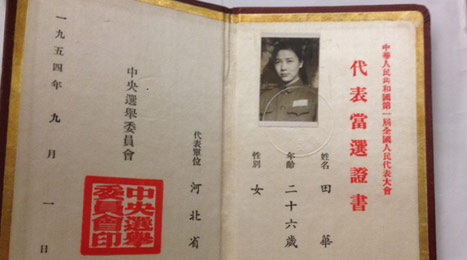 中華人民共和國第一屆全國人民代表大會
代表當選證書
姓名 田華
年齡 二十六歲
性別 女
代表單位 河北省
中央選舉委員會
一九五四年 九月 一日
中央選舉
委員會印